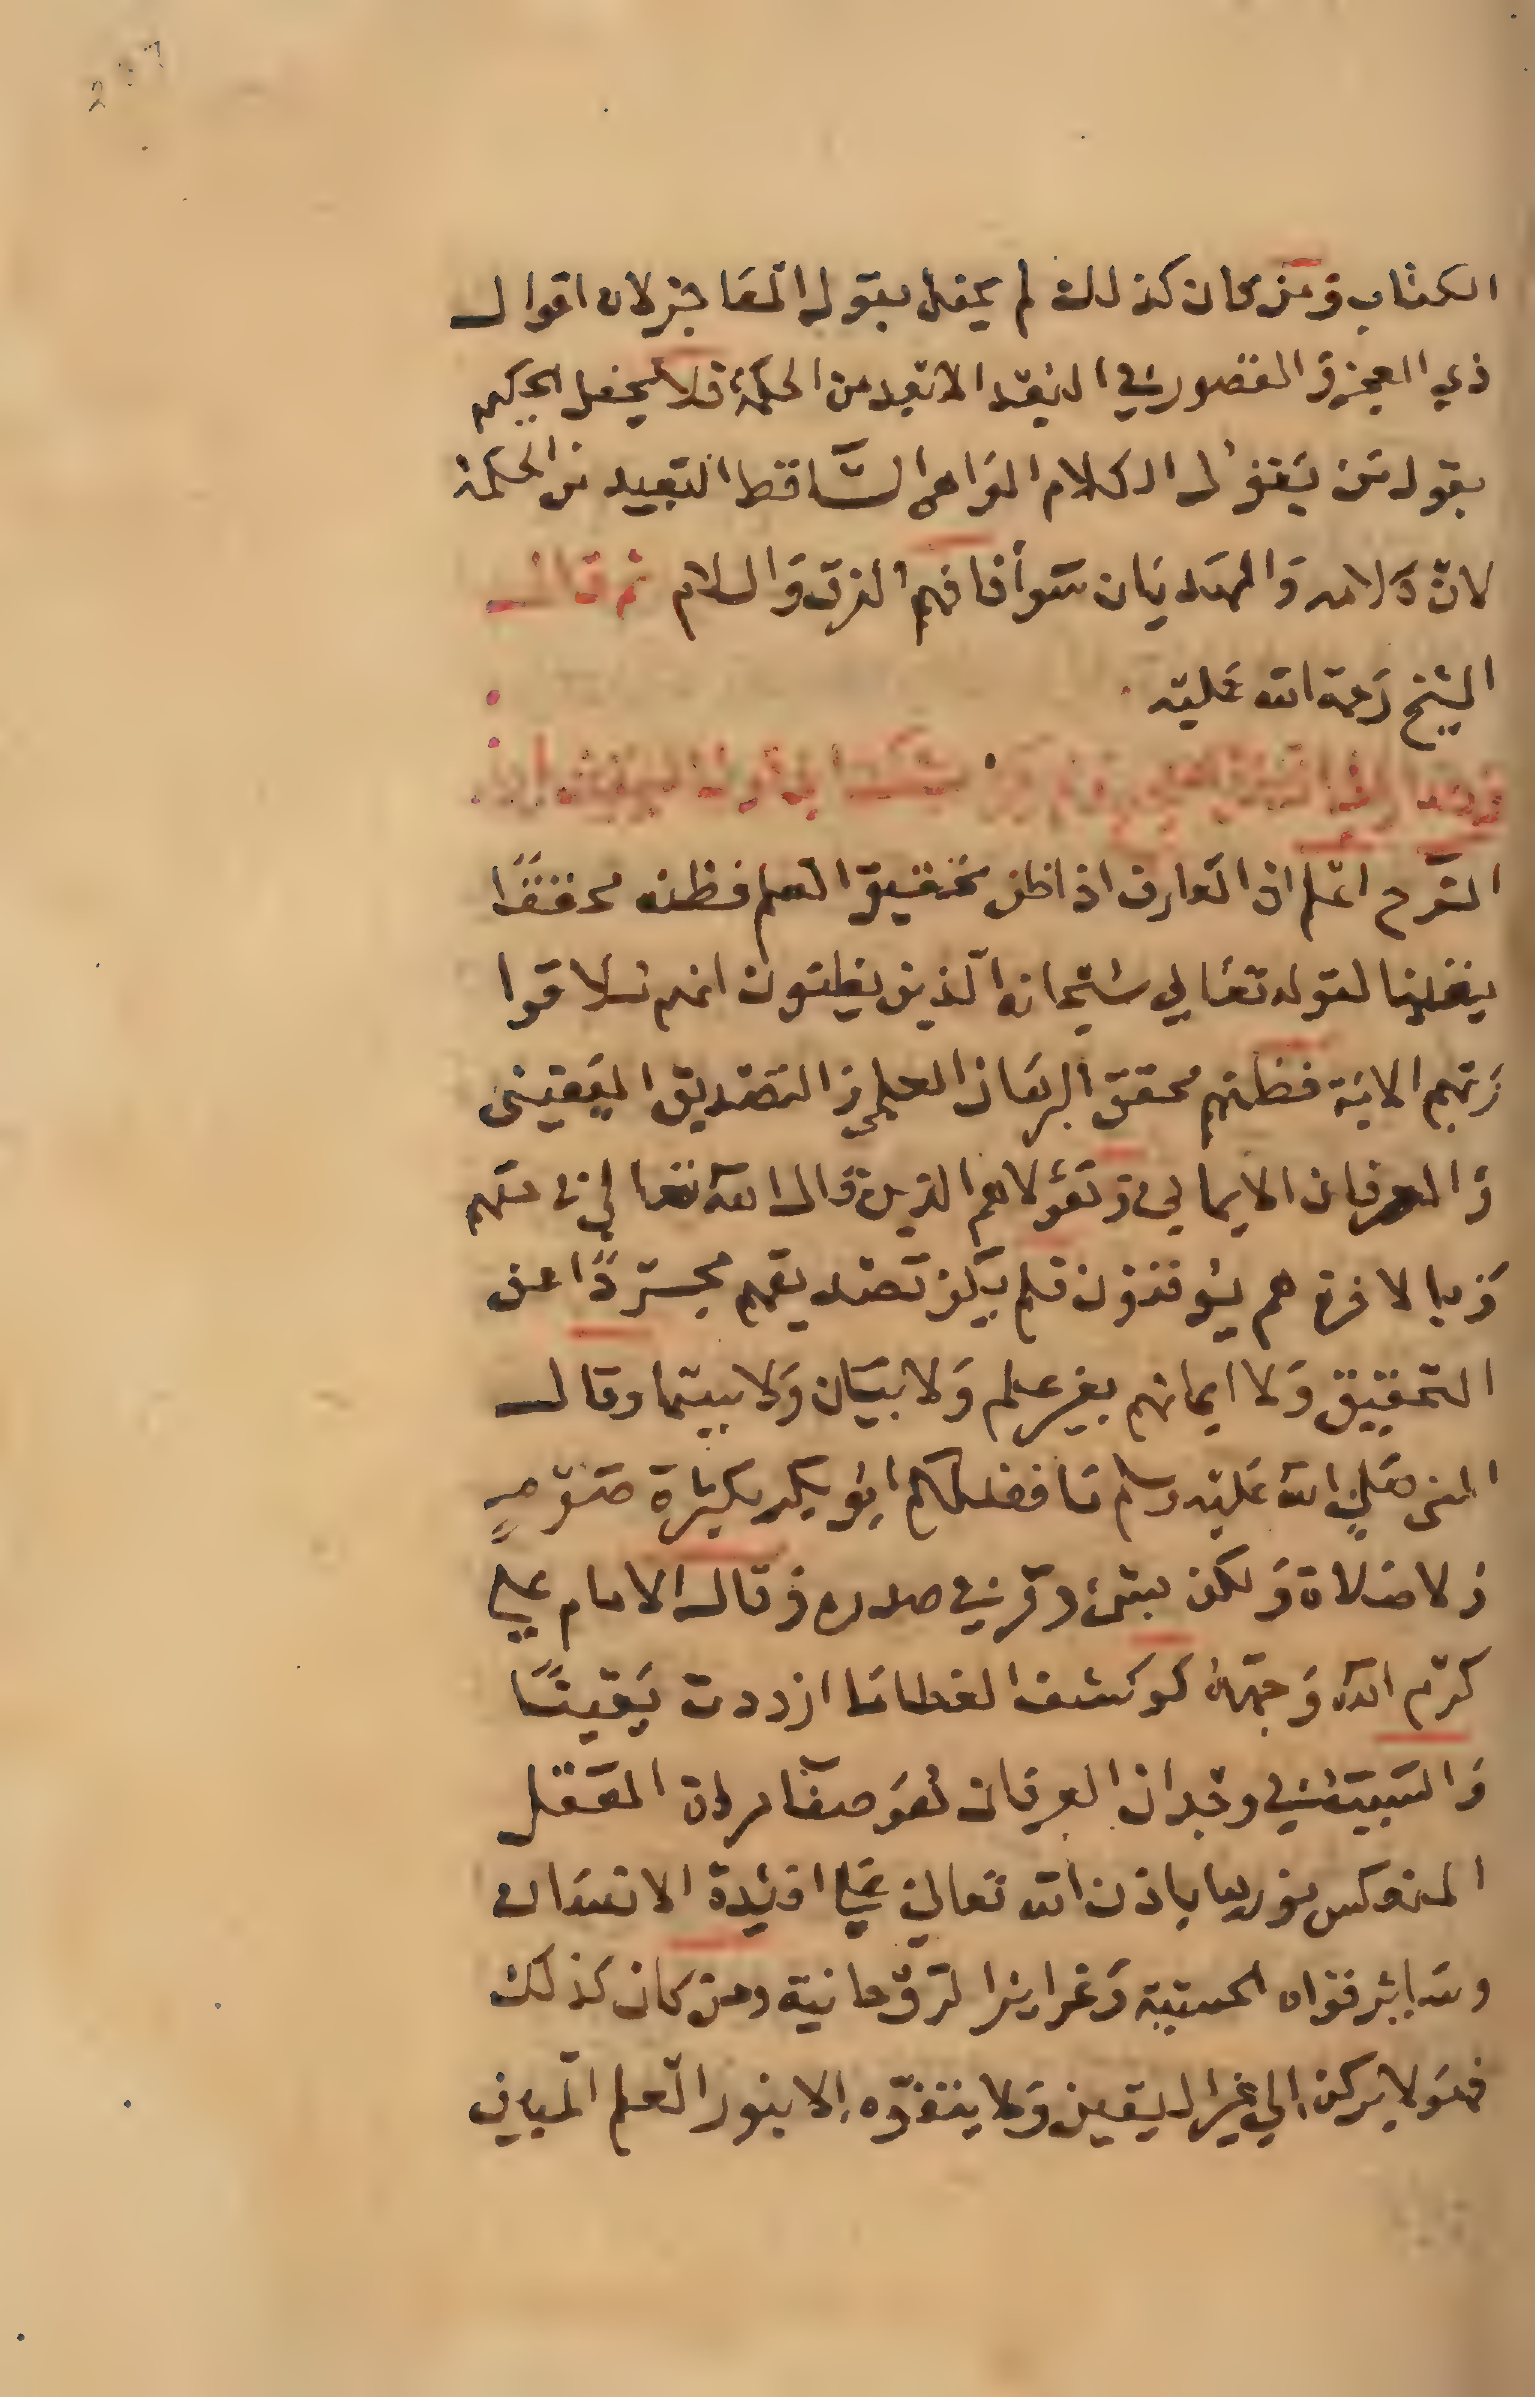 الكتاب ومن كان كذلك لم يحفل بقول العاجز لان اقوال
ذي العجز والقصور في البعد الابعد من الحكمة فلا يحفل الحكيم
بقول من يتفوه الى الكلام الواهي الساقط البعيد من الحكمة
لان كلامه والهذيان سوأ فافهم الفرق والسلام ثم قال
الشيخ رحمة الله عليه
الشرح اعلم ان العارف اذا ظن بحقيق العلم فظنه محققا
يقينا لقوله تعالى سبحانه الذين يظنون انهم ملاقوا
ربهم الاية فظنهم محقق البرهان العلمي والتصديق اليقيني
والعرفان الايماني وهؤلاهم الذين قال الله تعالى في حقهم
وبالاخرة هم يوقنون فلم يكن تصديقهم مجردا عن
التحقيق ولا ايمانهم بغير علم ولا بيان ولا بينة وقال
النبي صلى الله عليه وسلم ما فضلكم ابو بكر بكثرة صوم
ولا صلاة ولكن بشئ وقر في صدره وقال الامام علي
كرم الله وجهه لو كشف الغطا ما ازددت يقينا
والسبب في وجدان العرفان هو صفا مراة العقل
المنعكس نورها باذن الله تعالى على افئدة الانسان
وسائر قواه الحسية وغرايزا لروحانية ومن كان كذلك
فهو لا يركن الى غير اليقين ولا يتفوه الا بنور العلم المبين